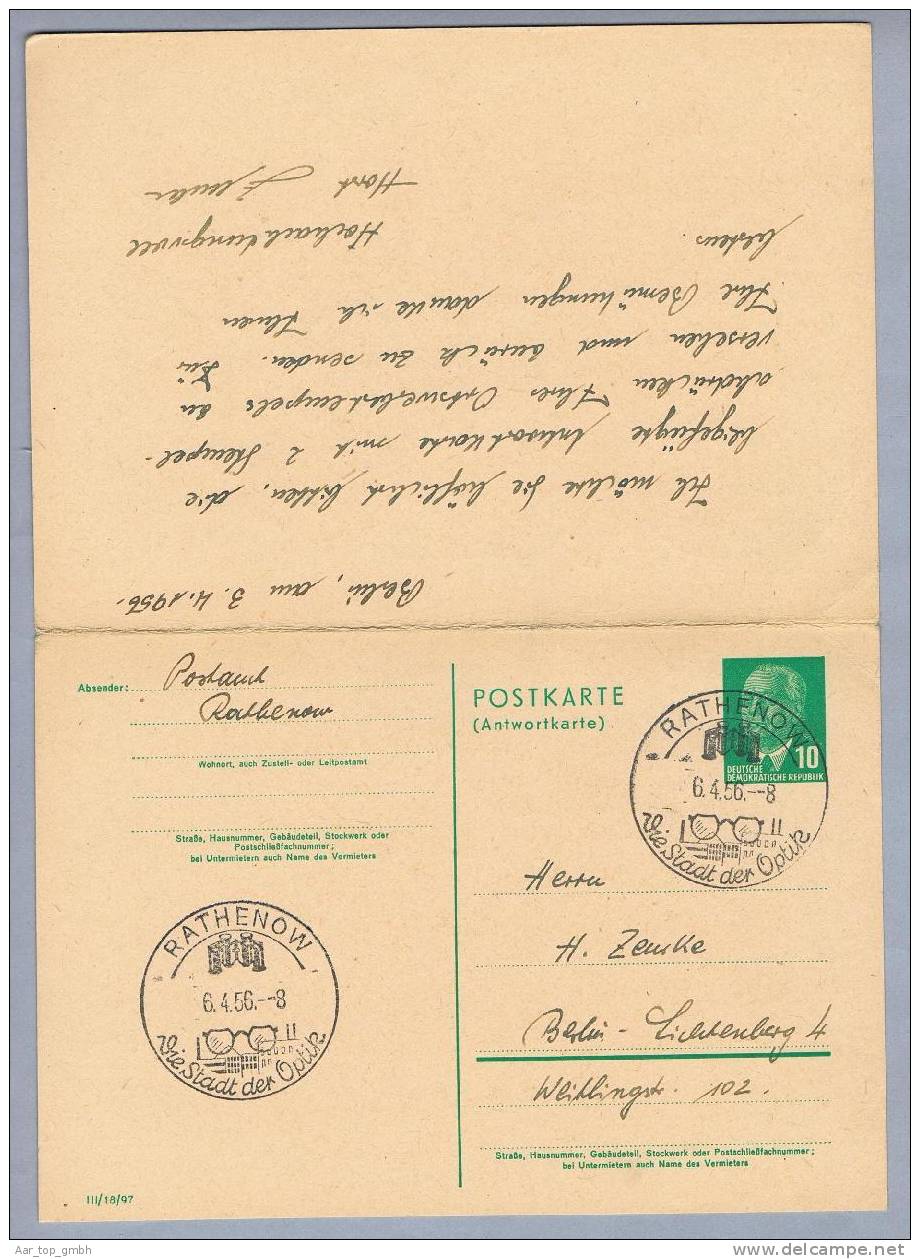 Berlin, am 3.4.1956.
Ich möchte Sie höflichst bitten, die
beigefügte Antwortkarte mit 2 Stempel-
abdrücken Ihres Ortswerbestempels zu
versehen und zurück zu senden. Für
Ihre Bemühungen danke ich Ihnen
bestens
Hochachtungsvoll
Horst
Absender: Postamt
Rathenow
Wohnort, auch Zustell- oder Leitpostamt
Straße, Hausnummer, Gebäudeteil, Stockwerk oder
Postschließfachnummer;
bei Untermietern auch Name des Vermieters
POSTKARTE
(Antwortkarte)
10
DEUTSCHE
DEMOKRATISCHE REPUBLIK
RATHENOW
6.4.56.--8
Die Stadt der Optik
RATHENOW
6.4.56.--8
Die Stadt der Optik
Herrn
H. Zemke
Berlin-Lichtenberg 4
Weitlingstr. 102.
Straße, Hausnummer, Gebäudeteil, Stockwerk oder Postschließfachnummer;
bei Untermietern auch Name des Vermieters
III/18/97
Aar_top_gmbh
www.delcampe.net